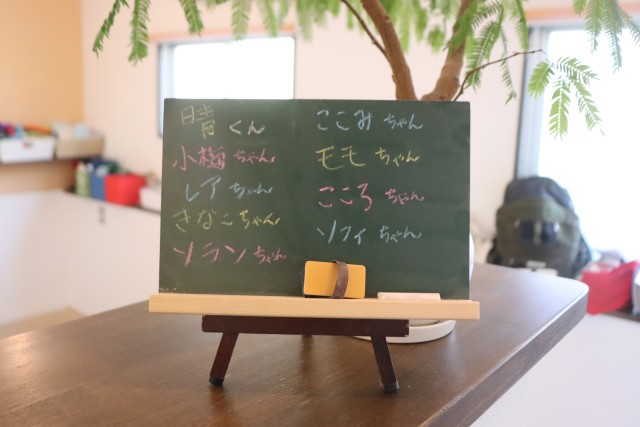 晴くん
小梅ちゃん
レアちゃん
きなこちゃん
ソランちゃん
ここみちゃん
モモちゃん
こころちゃん
ソフィちゃん